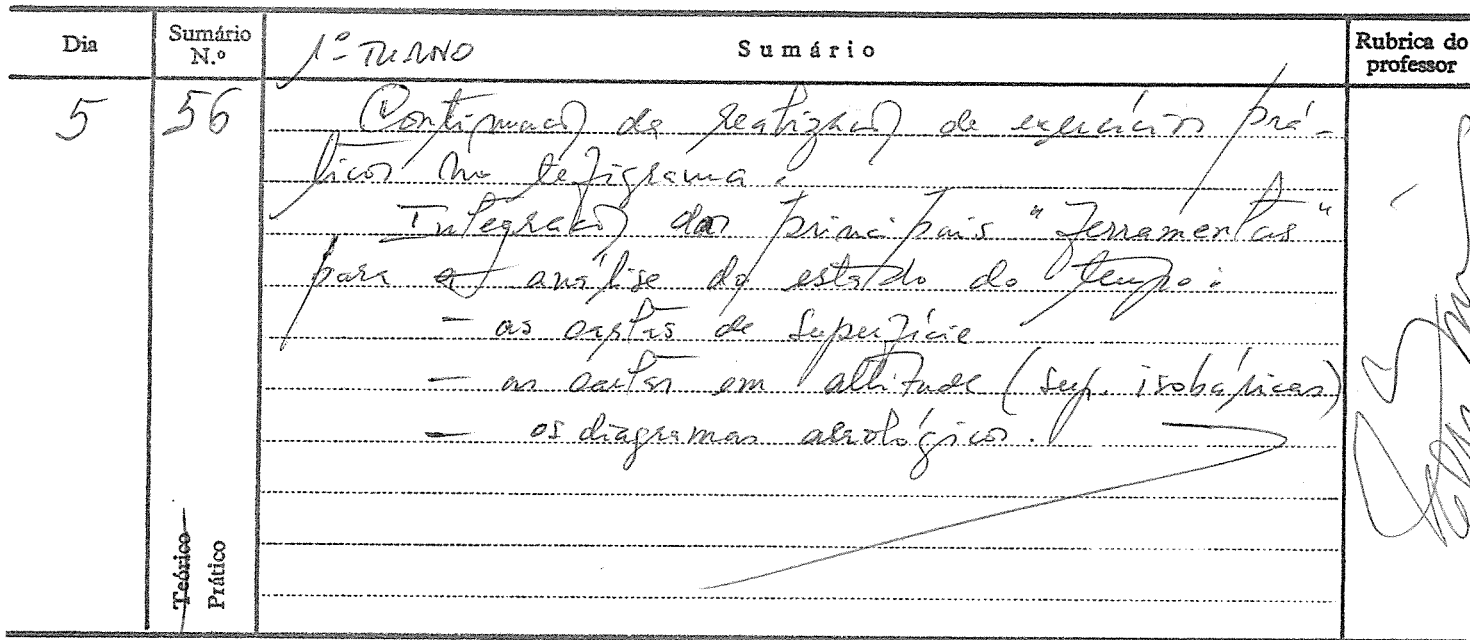 Dia
Sumário N.º
1º TURNO
Sumário
Rubrica do professor
5
56
Continuação da realização de exercícios prá-
ticos no tefigrama.
Integração das principais "ferramentas"
para a análise do estado do tempo:
- as cartas de superfície
- as cartas em altitude (sup. isobáricas)
- os diagramas aerológicos.
Teórico
Prático